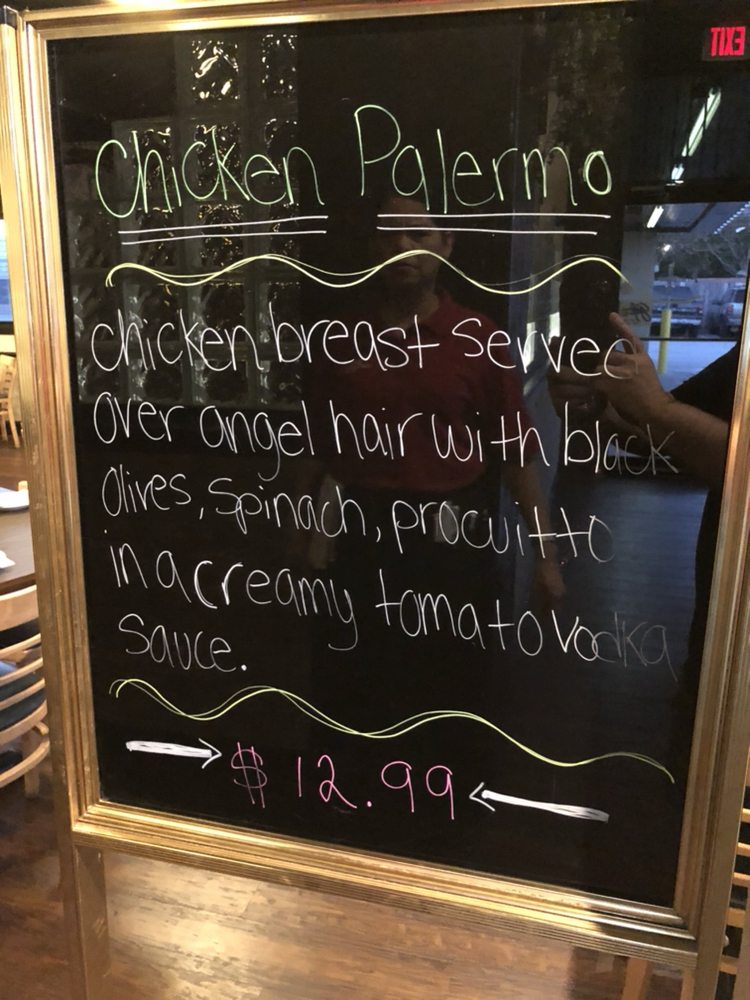 EXIT
Chicken Palermo
chicken breast served
over angel hair with black
olives, spinach, procuitto
in a creamy tomato vodka
sauce.
$12.99